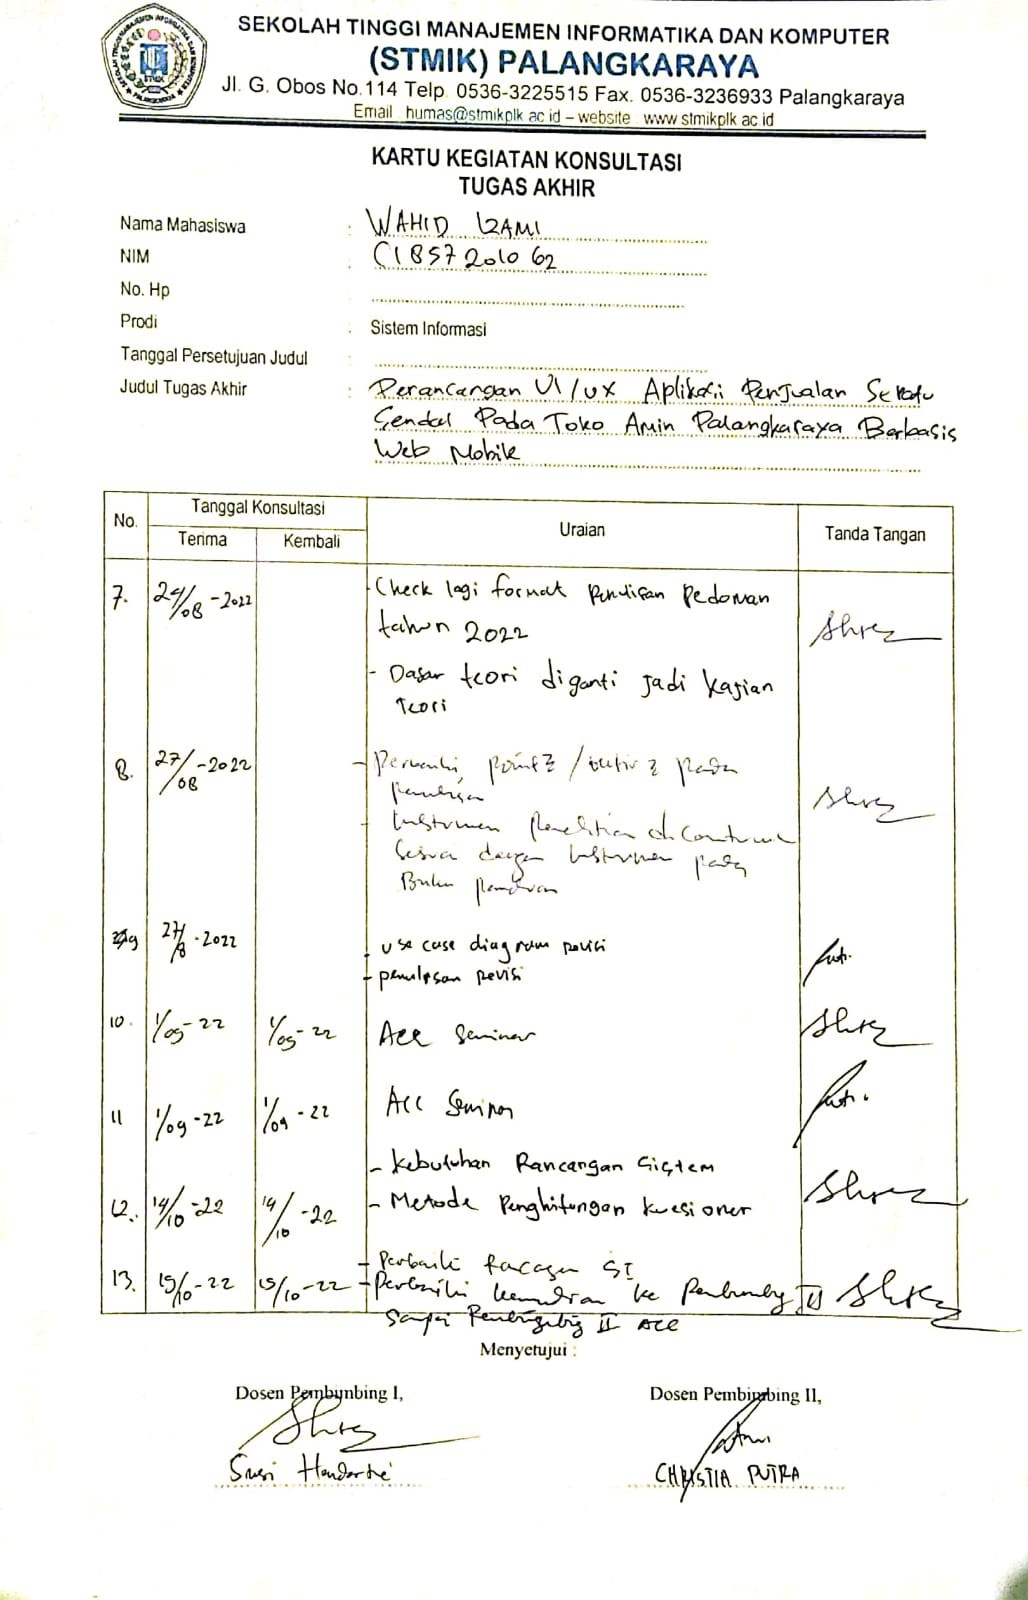 SEKOLAH TINGGI MANAJEMEN INFORMATIKA DAN KOMPUTER
(STMIK) PALANGKARAYA
Jl. G. Obos No.114 Telp. 0536-3225515 Fax. 0536-3236933 Palangkaraya
Email : humas@stmikplk.ac.id – website : www.stmikplk.ac.id
KARTU KEGIATAN KONSULTASI
TUGAS AKHIR
Nama Mahasiswa : WAHID IZAMI
NIM : C1857201062
No. Hp
Prodi : Sistem Informasi
Tanggal Persetujuan Judul :
Judul Tugas Akhir : Perancangan UI/UX Aplikasi Penjualan Sepatu
Sendal Pada Toko Amin Palangkaraya Berbasis
Web Mobile
No. Tanggal Konsultasi Uraian Tanda Tangan
Terima Kembali
7. 24/08-2022 - Check lagi format penulisan Pedoman
tahun 2022
- Dasar teori diganti jadi kajian
teori
8. 27/08-2022 - point2 / butir2 pada
penulisan
- Instrumen penelitian
sesuai dengan Instrumen pada
Buku panduan
9 27/8-2022 - use case diagram revisi
- penulisan revisi
10. 1/09-22 1/09-22 Acc Seminar
11 1/09-22 1/09-22 Acc Seminar
- Kebutuhan Rancangan Sistem
12. 14/10-22 14/10-22 - Metode Penghitungan kuesioner
- Perbaiki
13. 15/10-22 15/10-22 - Perbaiki kemudian ke Pembimbing II
Sampai Pembimbing II Acc
Menyetujui :
Dosen Pembimbing I, Dosen Pembimbing II,
CHRISTIA PUTRA